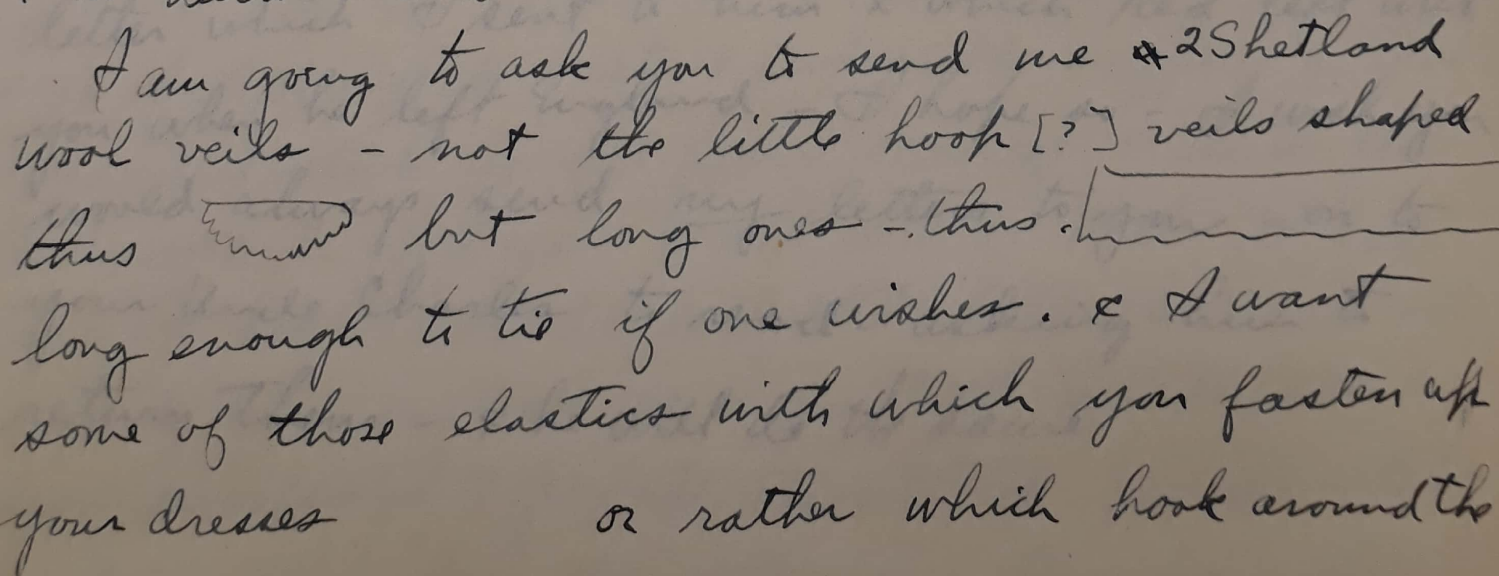 I am going to ask you to send me 2 Shetland
wool veils - not the little hoop [?] veils shaped
thus but long ones - thus.
long enough to tie if one wishes. & I want
some of those elastics with which you fasten up
your dresses or rather which hook around the